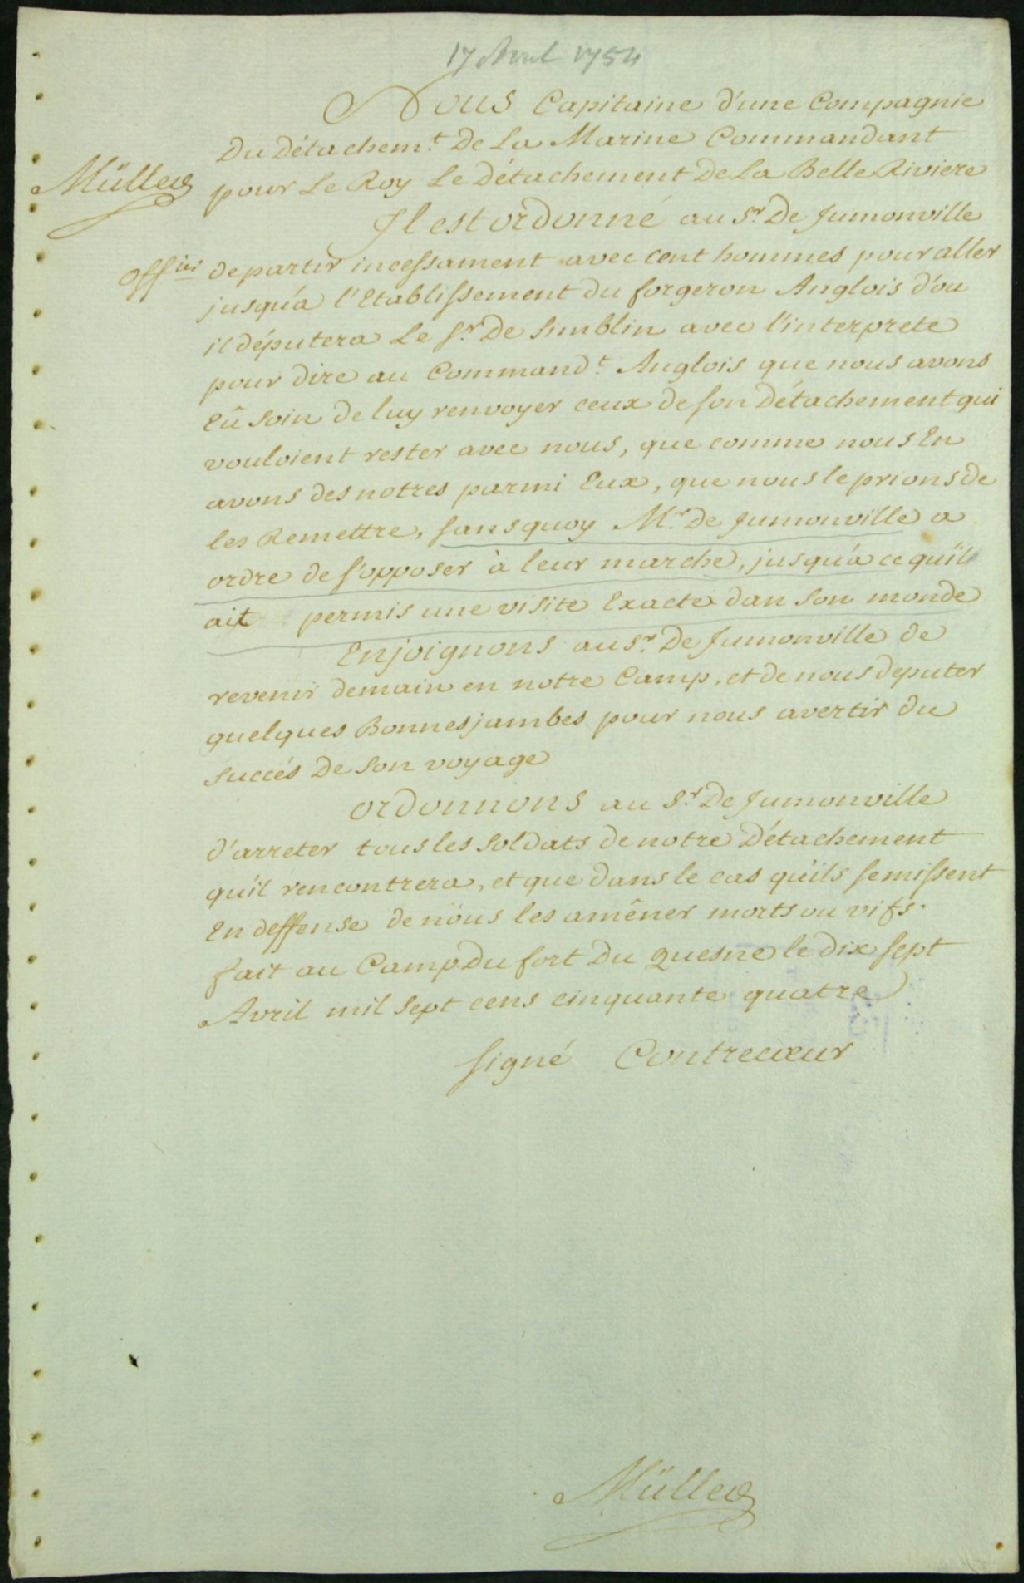 17 Avril 1754
Nous Capitaine d'une Compagnie
Du Détachem.t De La Marine Commandant
Müller
pour Le Roy Le Détachement De La Belle Riviere
Il est ordonné au Sr. De Jumonville
offier
de partir incessament avec cent hommes pour aller
jusqu'a l'Etablissement du forgeron Anglois d'ou
il députera Le Sr. De Simblin avec l'interprete
pour dire au Command.t Anglois que nous avons
Eû soin de luy renvoyer ceux de son Détachement qui
vouloient rester avec nous, que comme nous En
avons des notres parmi Eux, que nous le prions de
les Remettre, sans quoy Mr. de Jumonville a
ordre de s'opposer à leur marche, jusqu'a ce qu'il
ait permis une visite Exacte dan son monde
Enjoignons au Sr. De Jumonville de
revenir demain en notre Camp, et de nous deputer
quelques Bonnes jambes pour nous avertir du
succés De son voyage
ordonnons au Sr. De Jumonville
d'arreter tous les soldats de notre Détachement
qu'il rencontrera, et que dans le cas qu'ils se missent
En deffense de nous les amêner morts ou vifs.
fait au Camp Du fort Du Quesne le dix sept
Avril mil sept cens cinquante quatre
signé Contrecœur
Müller